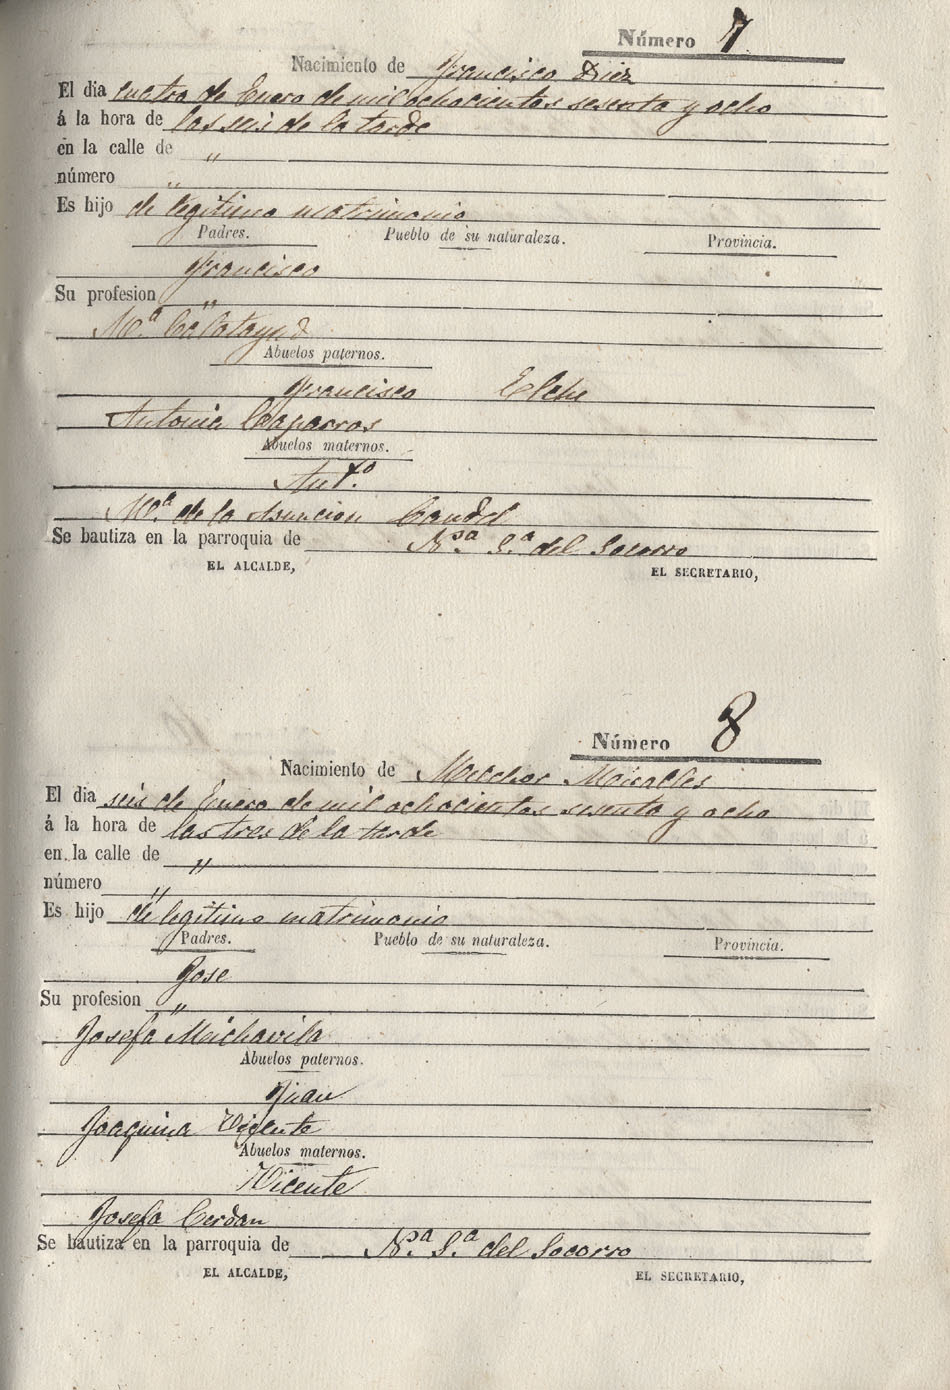 Número 7
Nacimiento de Francisco Diez
El dia cuatro de Enero de mil ochocientos sesenta y ocho
á la hora de las seis de la tarde
en la calle de "
número "
Es hijo de legitimo matrimonio
Padres. Pueblo de su naturaleza. Provincia.
Francisco
Su profesion "
M.ª Calatayud
Abuelos paternos.
Francisco Elche
Antonia Caparros
Abuelos maternos.
Ant.º
M.ª de la Asuncion Candel
Se bautiza en la parroquia de N.sa S.ª del Socorro
EL ALCALDE, EL SECRETARIO,
Número 8
Nacimiento de Melchor Miralles
El dia seis de Enero de mil ochocientos sesenta y ocho
á la hora de las tres de la tarde
en la calle de "
número "
Es hijo de legitimo matrimonio
Padres. Pueblo de su naturaleza. Provincia.
Jose
Su profesion "
Josefa Michavila
Abuelos paternos.
Juan
Joaquina Vicente
Abuelos maternos.
Vicente
Josefa Cerdan
Se bautiza en la parroquia de N.sa S.ª del Socorro
EL ALCALDE, EL SECRETARIO,